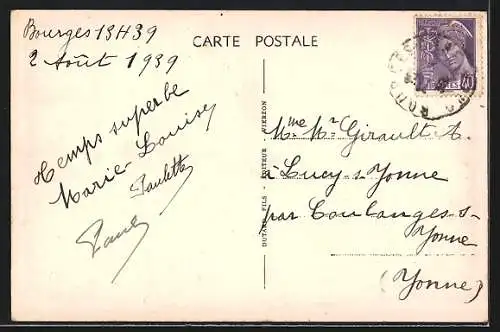 Bourges 13H39
2 Août 1939
CARTE POSTALE
Temps superbe
Marie-Louise
Paulette
Paul
DUTARDE FILS - EDITEUR - VIERZON
Mme Mr Girault A.
à Lucy-s-Yonne
par Coulanges-s-
Yonne
(Yonne)
POSTES 40
BOURGES